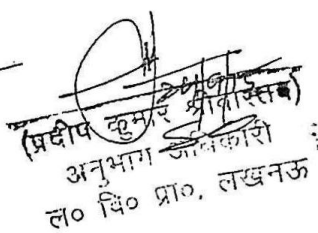 (प्रदीप कुमार श्रीवास्तव)
अनुभाग अधिकारी
ल० वि० प्रा०, लखनऊ